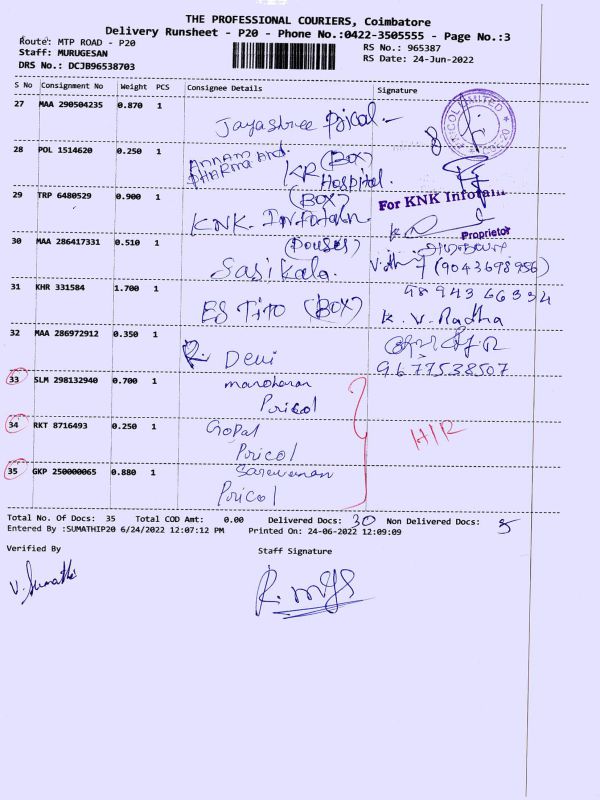 THE PROFESSIONAL COURIERS, Coimbatore
Delivery Runsheet - P20 - Phone No.:0422-3505555 - Page No.:3
Route: MTP ROAD - P20
Staff: MURUGESAN
DRS No.: DCJB96538703
RS No.: 965387
RS Date: 24-Jun-2022
S No Consignment No Weight PCS Consignee Details Signature
27 MAA 290504235 0.870 1 Jayashree Pricol
28 POL 1514620 0.250 1 KR (Box) Hospital.
29 TRP 6480529 0.900 1 (BOX) KNK. Infotain
For KNK Infotain
Proprietor
30 MAA 286417331 0.510 1 Sasikala. (9043698956)
31 KHR 331584 1.700 1 ES Tito (BOX) K. V. Radha
32 MAA 286972912 0.350 1 R. Devi 9677538507
33 SLM 298132940 0.700 1 manoharan Pricol
34 RKT 8716493 0.250 1 Gopal Pricol
35 GKP 250000065 0.880 1 Saravanan Pricol
Total No. Of Docs: 35 Total COD Amt: 0.00 Delivered Docs: 30 Non Delivered Docs: 5
Entered By :SUMATHIP20 6/24/2022 12:07:12 PM Printed On: 24-06-2022 12:09:09
Verified By Staff Signature
V. Sumathi